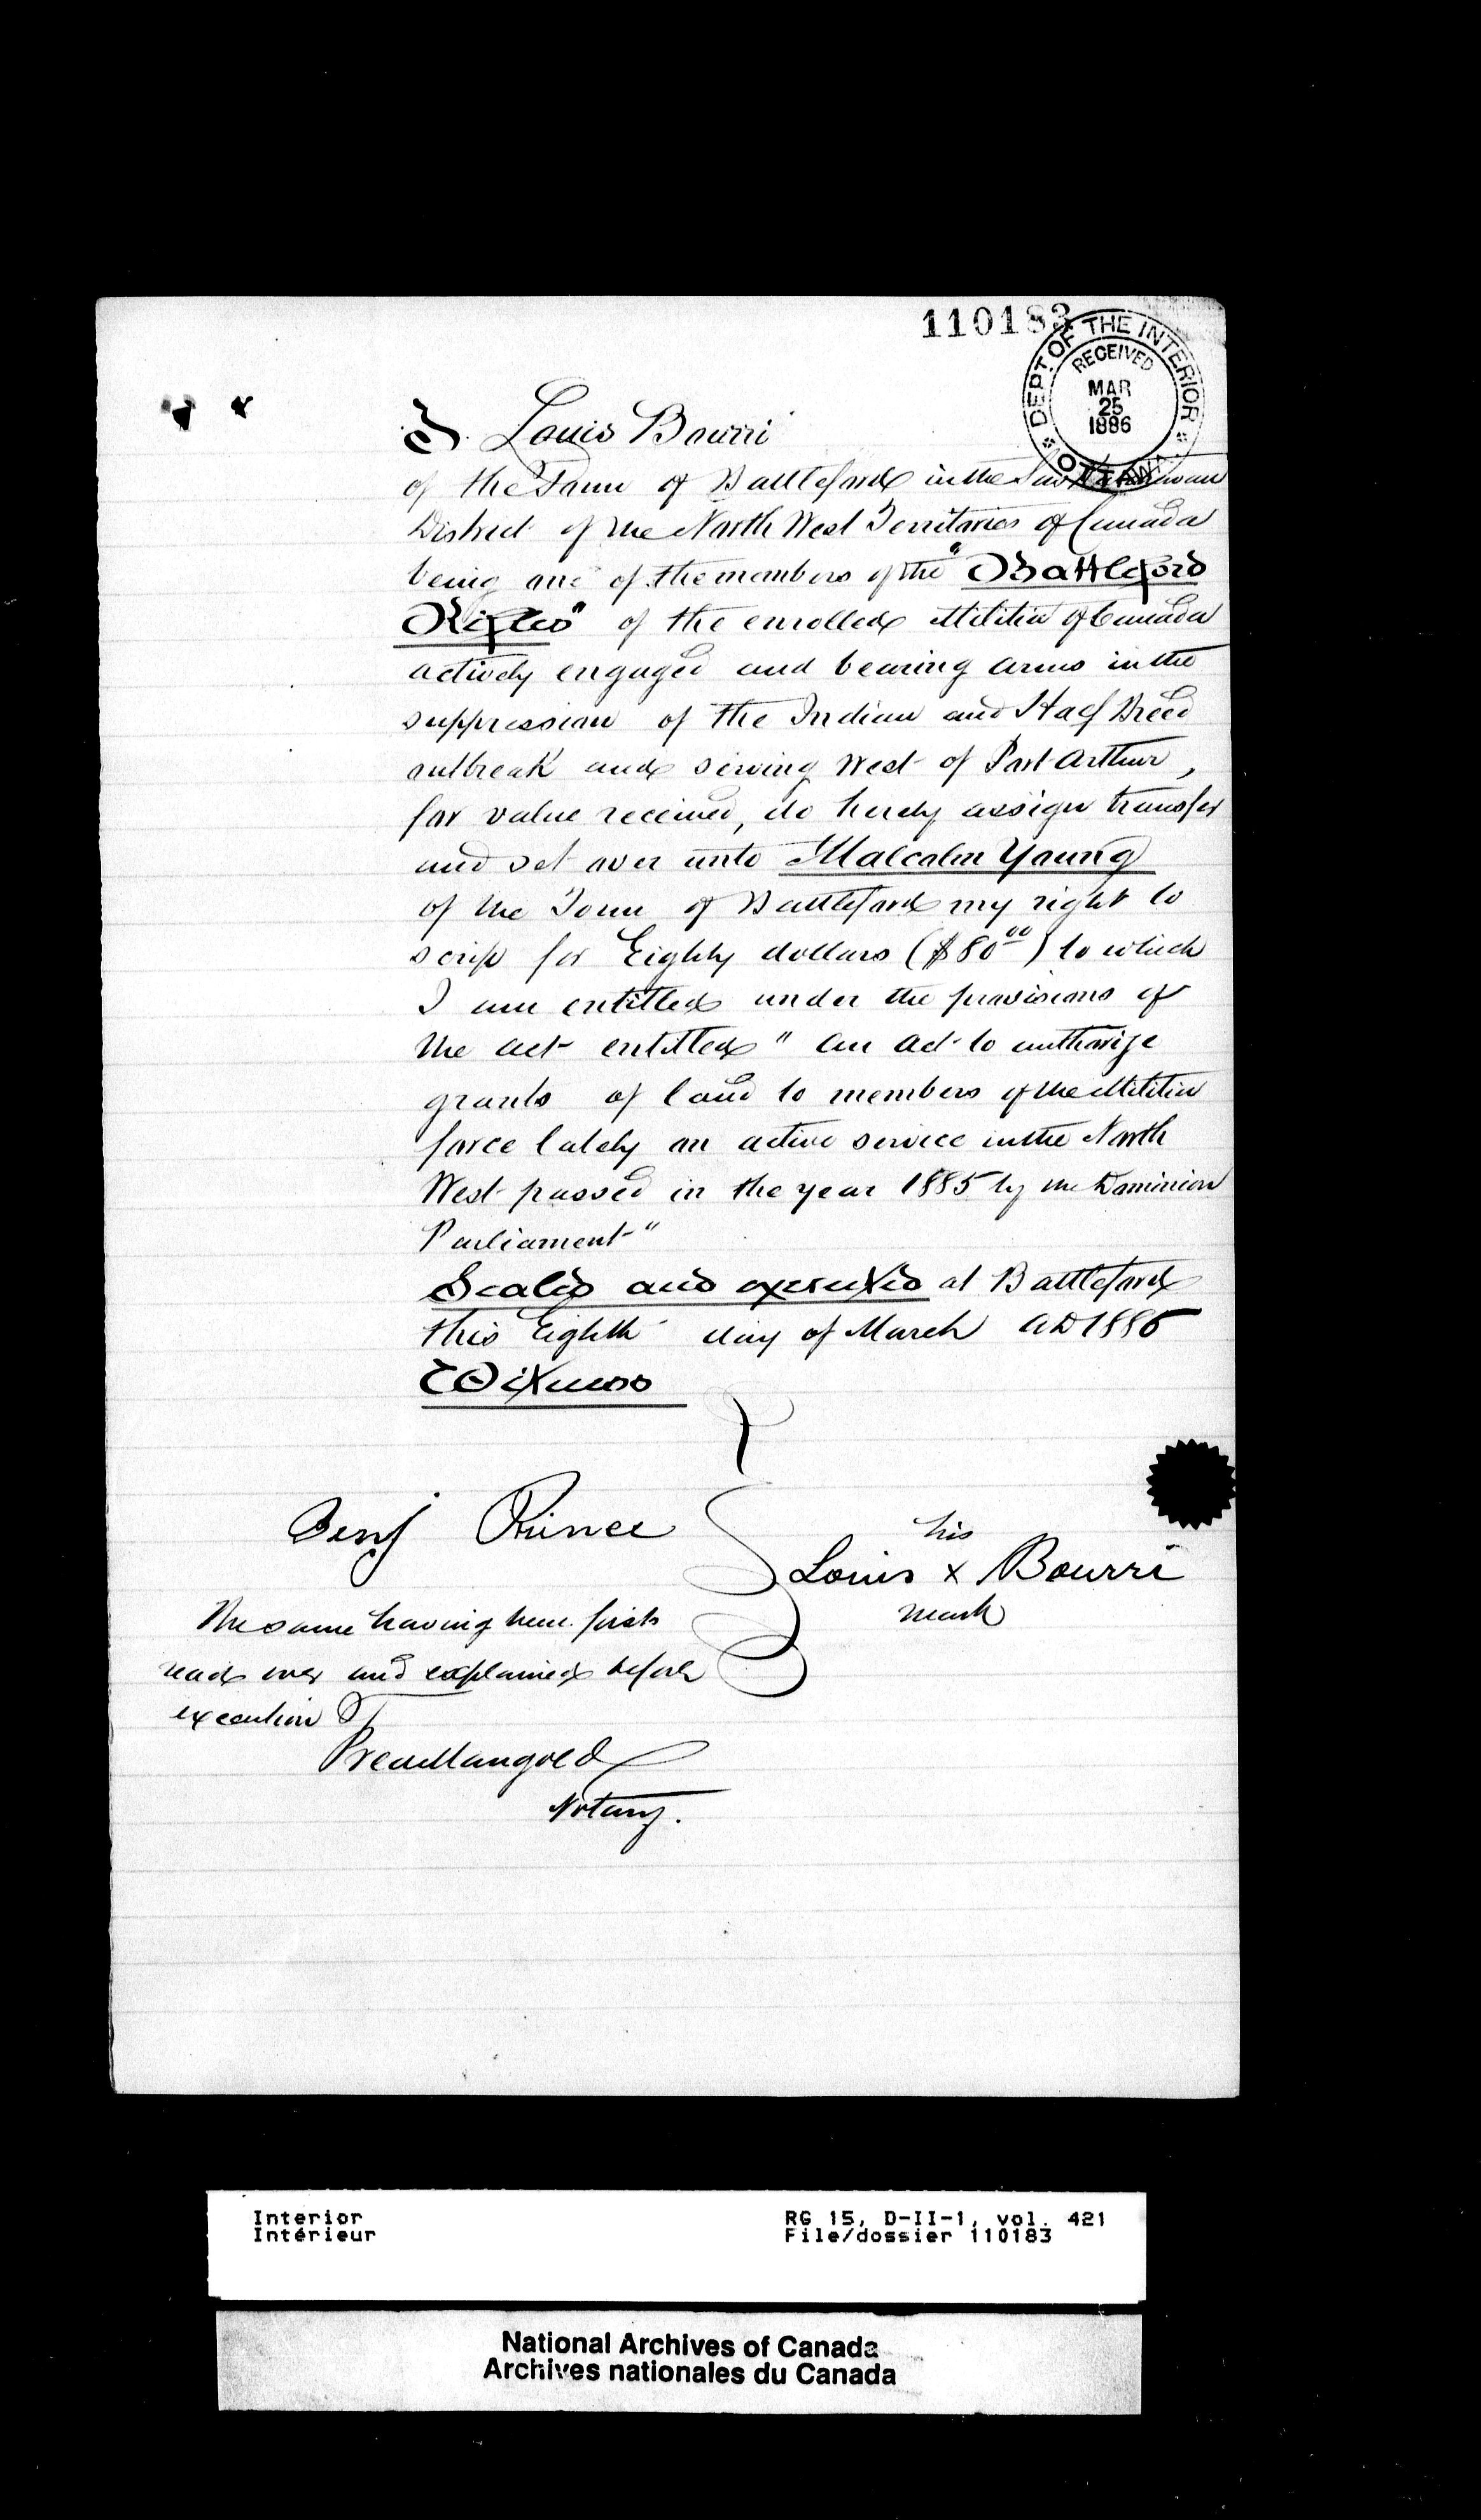 110183
DEPT. OF THE INTERIOR
RECEIVED
MAR
25
1886
OTTAWA
I. Louis Bourri
of the Town of Battleford in the Saskatchewan
District of the North West Territories of Canada
being one of the members of the "Battleford
Rifles" of the enrolled Militia of Canada
actively engaged and bearing arms in the
suppression of the Indian and Half Breed
outbreak and serving West of Port Arthur,
for value received, do hereby assign transfer
and set over unto Malcolm Young
of the Town of Battleford my right to
scrip for Eighty dollars ($80 00) to which
I am entitled under the provisions of
the act entitled "an act to authorize
grants of land to members of the Militia
force lately on active service in the North
West passed in the year 1885 by the Dominion
Parliament"
Sealed and executed at Battleford
this Eighth day of March AD 1886
Witness
Benj Prince
his
Louis x Bourri
mark
The same having been first
read over and explained before
execution
Notary.
Interior
Intérieur
RG 15, D-II-1, vol. 421
File/dossier 110183
National Archives of Canada
Archives nationales du Canada